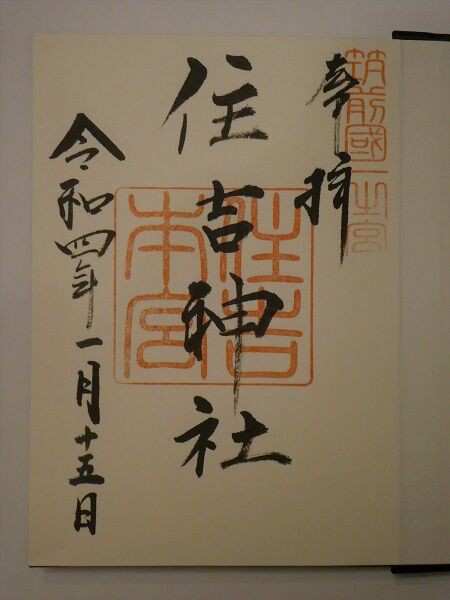 筑前國一之宮
奉拝
住吉神社
住吉本宮
令和四年一月十五日